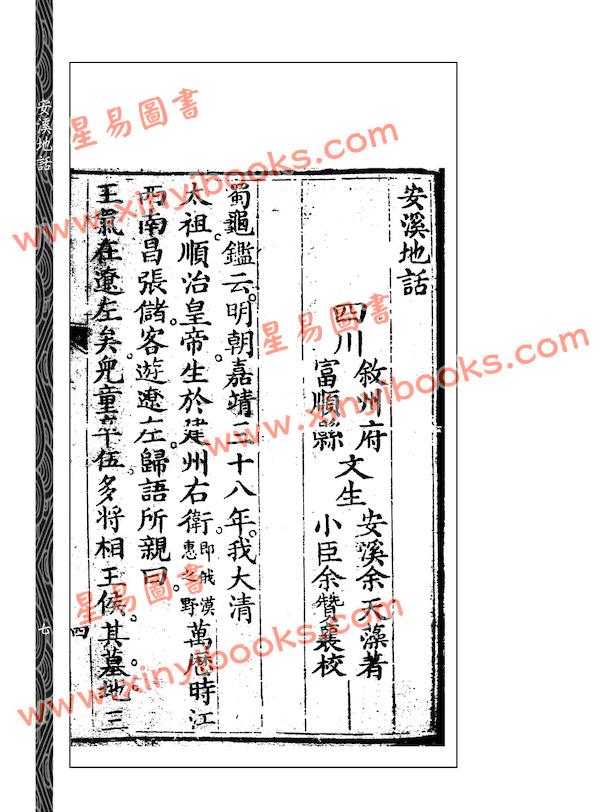 安溪地話
四川
敘州府
富順縣
文生
安溪余天藻著
小臣余贊襄校
蜀龜鑑云。明朝嘉靖三十八年。我大清
太祖順治皇帝生於建州右衛。即俄漠惠之野萬曆時江
西南昌張儲客。遊遼左歸語所親曰。
王氣在遼左矣。兒童卒伍。多將相王侯。其墓地三
四
安溪地話
七
星易圖書
www.xinyibooks.com
星易圖書
www.xinyibooks.com
星易圖書
www.xinyibooks.com